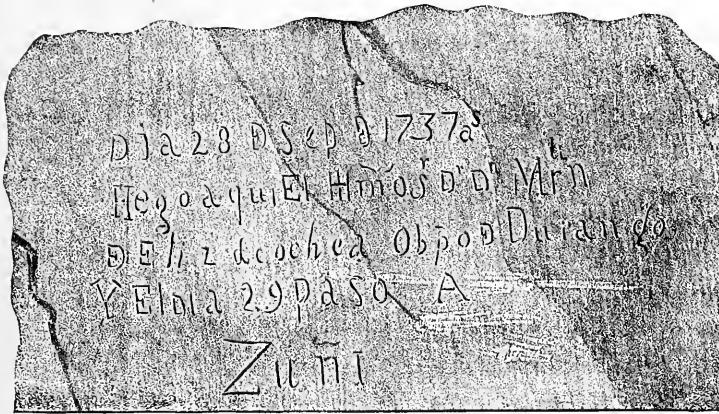 Dia 28 D Sep D 1737 aˢ
llegó aqui El Hm̃oSʳ Dʳ Dⁿ Mr̃ⁿ
D Eliz dcochea Obp̃o D Durango
Y El Dia 29 paso A
Zuñi